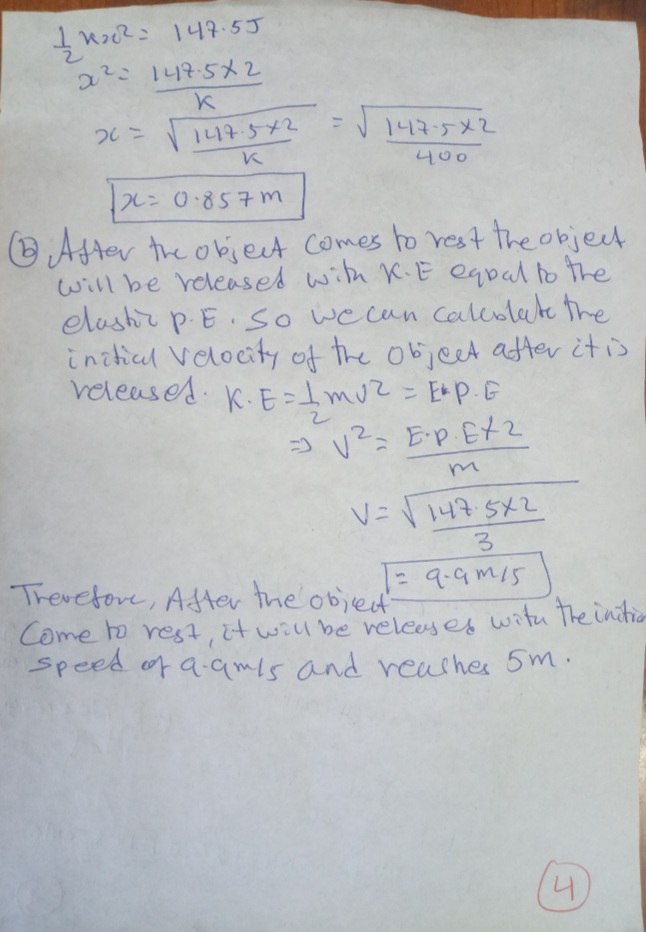 1/2 kx² = 147.5J
x² = 147.5×2/k
x = √(147.5×2/k) = √(147.5×2/400)
x = 0.857m
(b) After the object comes to rest the object
will be released with K.E equal to the
elastic p.E. So we can calculate the
initial velocity of the object after it is
released. K.E = 1/2 mv² = E.p.E
⇒ v² = E.p.E×2/m
V = √(147.5×2/3)
= 9.9m/s
Therefore, After the object
Come to rest, it will be releases with the initia
speed of 9.9m/s and reaches 5m.
4